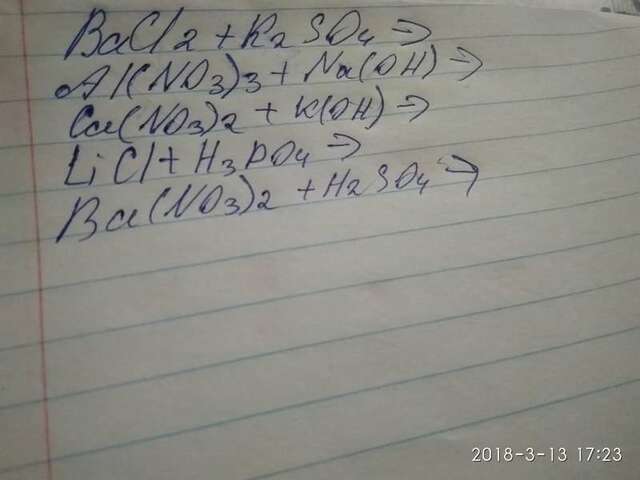 BaCl2 + K2SO4 →
Al(NO3)3 + Na(OH) →
Ca(NO3)2 + K(OH) →
LiCl + H3PO4 →
Ba(NO3)2 + H2SO4 →
2018-3-13 17:23